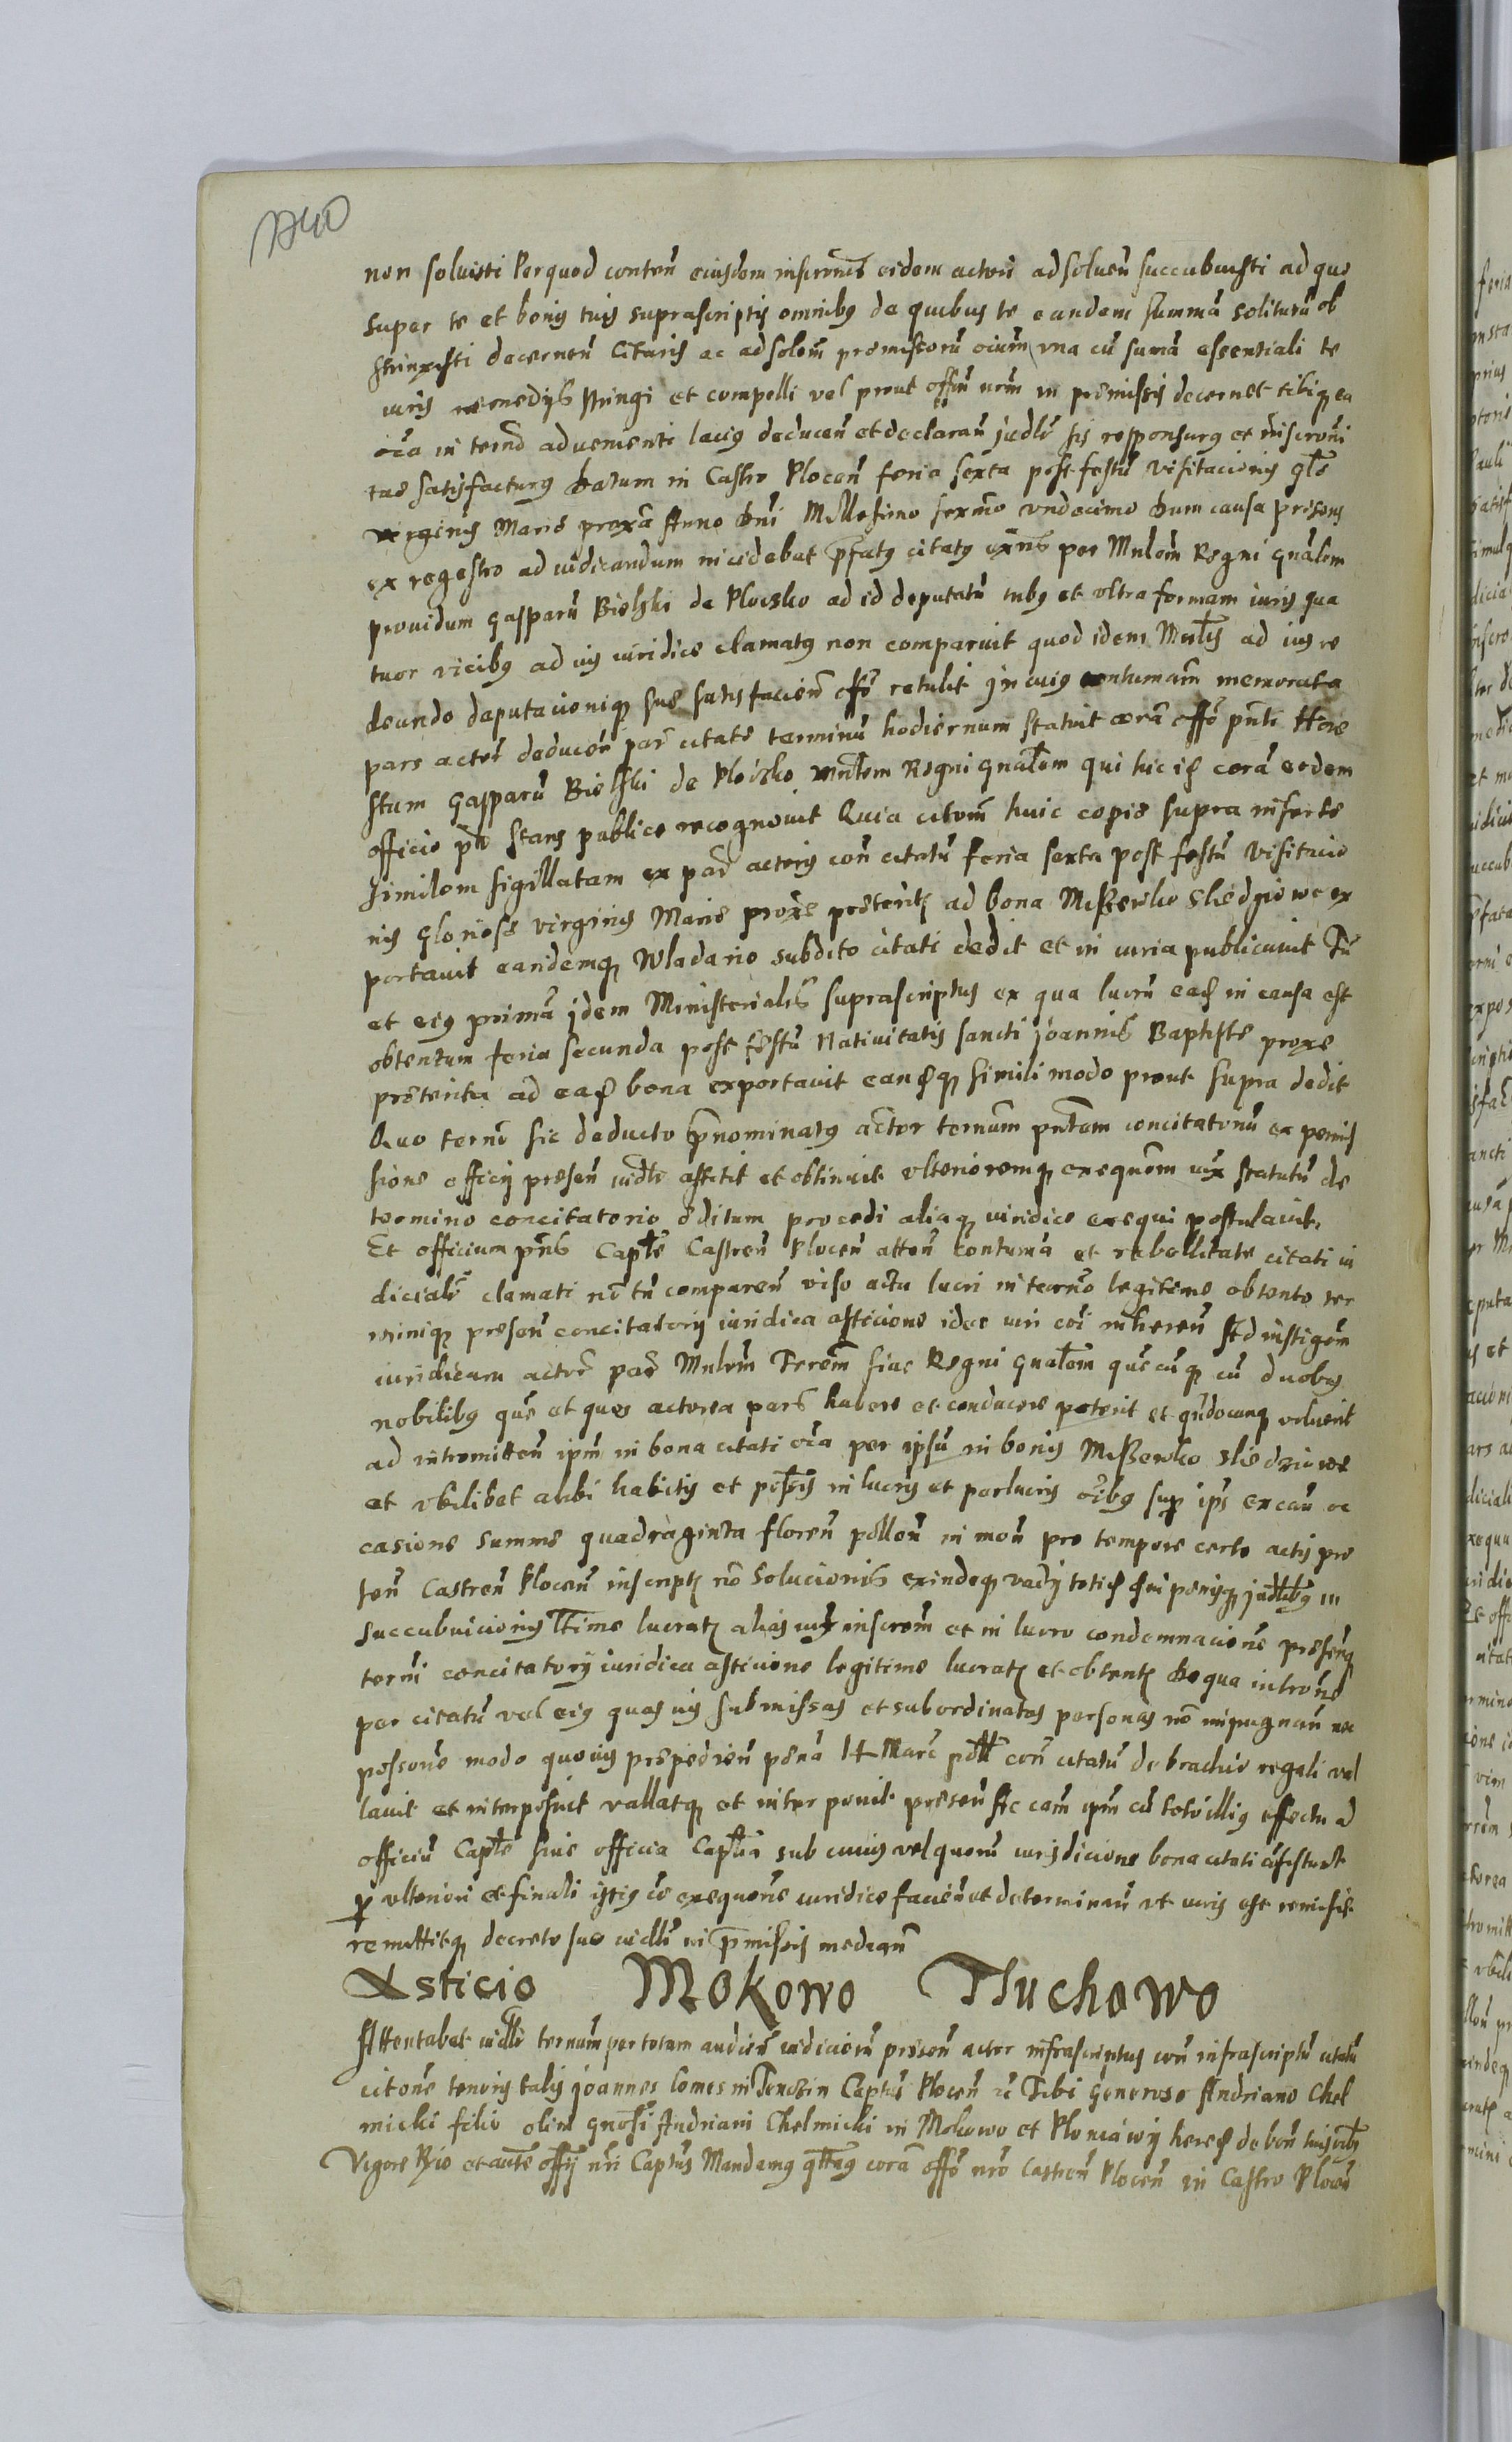 1240
non soluisti Perquod conten̄ eiusdem inscrīonis eidem actori ad soluen̄ succubuisti ad que
super te et bonis tuis suprascriptis omnibus de quibus te eandem summā soliturū ob
strinxisti decernen̄ Citaris ac ad solem̄ premissorū oium̄ vna cū sumā essentiali te
iuris remedijs stringi et compelli vel prout offīm nrm̄ in premissis decernet tibiq ea
oīa in termō aduenienti lacius deducen̄ et declaran̄ judlr̄ sis responsurus et inscrōni
tae satisfacturus Datum in Castro Plocen̄ feria sexta post festū Visitacionis glē
virginis Marie proxā Anno Dnī Millesimo sexmō vndecimo Dum causa presens
ex regestro ad iudicandum incidebat prēfatus citatus exn̄s per Mnlem̄ Regni gnālem
prouidum Gasparū Bielski de Plocsko ad id deputatū tribus et vltra formam iuris qua
tuor vicibus ad ius iuridice clamatus non comparuit quod idem Mnlis̄ ad ius re
deundo deputacioniq sue satisfacien̄ offō retulit In cuius contumam̄ memorata
pars actor̄ deducen̄ par̄ citate terminū hodiernum statuit corā offō pn̄ti Hone
stum Gasparū Bielski de Plocsko mnlem̄ Regni gnālem qui hic id corā eodem
officio pn̄ti stans publice recognouit Quia citom̄ huic copie supra inserte
similem sigillatam ex par̄ actoris con̄ citatū feria sexta post festū Visitacio
nis gloriose virginis Marie proxē preterit̄ ad bona Misewko Sledziowe ex
portauit eandemq Wladario subdito citati dedit et in curia publicauit Tū
et eius primā jdem Ministerialis suprascriptus ex qua lucrū ead in causa est
obtentum feria secunda post festū Natiuitatis sancti Joannis Baptiste proxe
preterita ad ead bona exportauit eandq simili modo prout supra dedit
Quo termō sic deducto prēnominatus actor termum̄ pn̄tem concitatoriū ex permis
sione officij presen̄ iudlr̄ astitit et obtinuit vlterioremq exequem̄ iux statutū de
termino concitatorio editum procedi aliaq iuridice exequi postulauit.
Et officium pn̄s Captle Castren̄ Plocen̄ atten̄ contumā et rebellitate citati iu
dicialr̄ clamati nō tn̄ comparen̄ viso actu lucri in termō legitime obtento ter
miniq presen̄ concitatorij iuridica asticione ideo iuri coī inheren̄ Ad instigem̄
iuridicam actor̄ par̄ Mnlem̄ Terem̄ siue Regni gnālem quecūq cū duobus
nobilibus que et quos actorea pars habere et conducere poterit et qn̄docunq voluerit
ad intromitten̄ ipm̄ in bona citati oīa per ipsū in bonis Misewko Sledziowe
et vbilibet alibi habitis et possis in lucris et perlucris oībus sup ips ex cau oc
casione summe quadraginta floren̄ pollon̄ in mon̄ pro tempore certo actis pre
sen̄ Castren̄ Plocen̄ inscript nō Solucionis exindeq vadij totid sui penisq judlibus in
succubuicionis ltīme lucrat alias iux inscrem̄ et in lucro condemnacione presenq
termī concitatorij iuridica asticione legitime lucrat et obtent De qua introne
per citatū vel eius quas uis submissas et subordinatas personas nō inpugnan̄ nec
possone modo quouis prepedien̄ penā 14 Marc̄ pollł con̄ citatū de brachio regali val
lauit et interposuit vallatq et inter ponit presen̄ sic cam̄ ipm̄ cū toto illius effectu ad
officiū Captle siue officia Captlia sub cuius vel quorū iurisdicione bona citati consistunt
p vlteriori et finali ipsius cē exequone iuridice facien̄ et determinan̄ vt iuris est remisit
remittitq decreto suo iudlī in premissis median̄
Asticio Mokowo Tluchowo
Attentabat iudlr̄ termum̄ per totam audien̄ iudiciorū presen̄ actor infrascriptus con̄ infrascriptū citatū
citone tenoris talis Joannes Comes in Tenczin Captus̄ Plocen̄ ec̄ Tibi Generoso Andriano Chel
micki filio olim gnosi Andriani Chelmicki in Mokowo et Plonciawij hered de bon̄ tuis oībus
Vigore Rgio et autē offij nrī Captus̄ Mandamus qttās corā offō nrō Castren̄ Plocen̄ in Castro Plocen̄